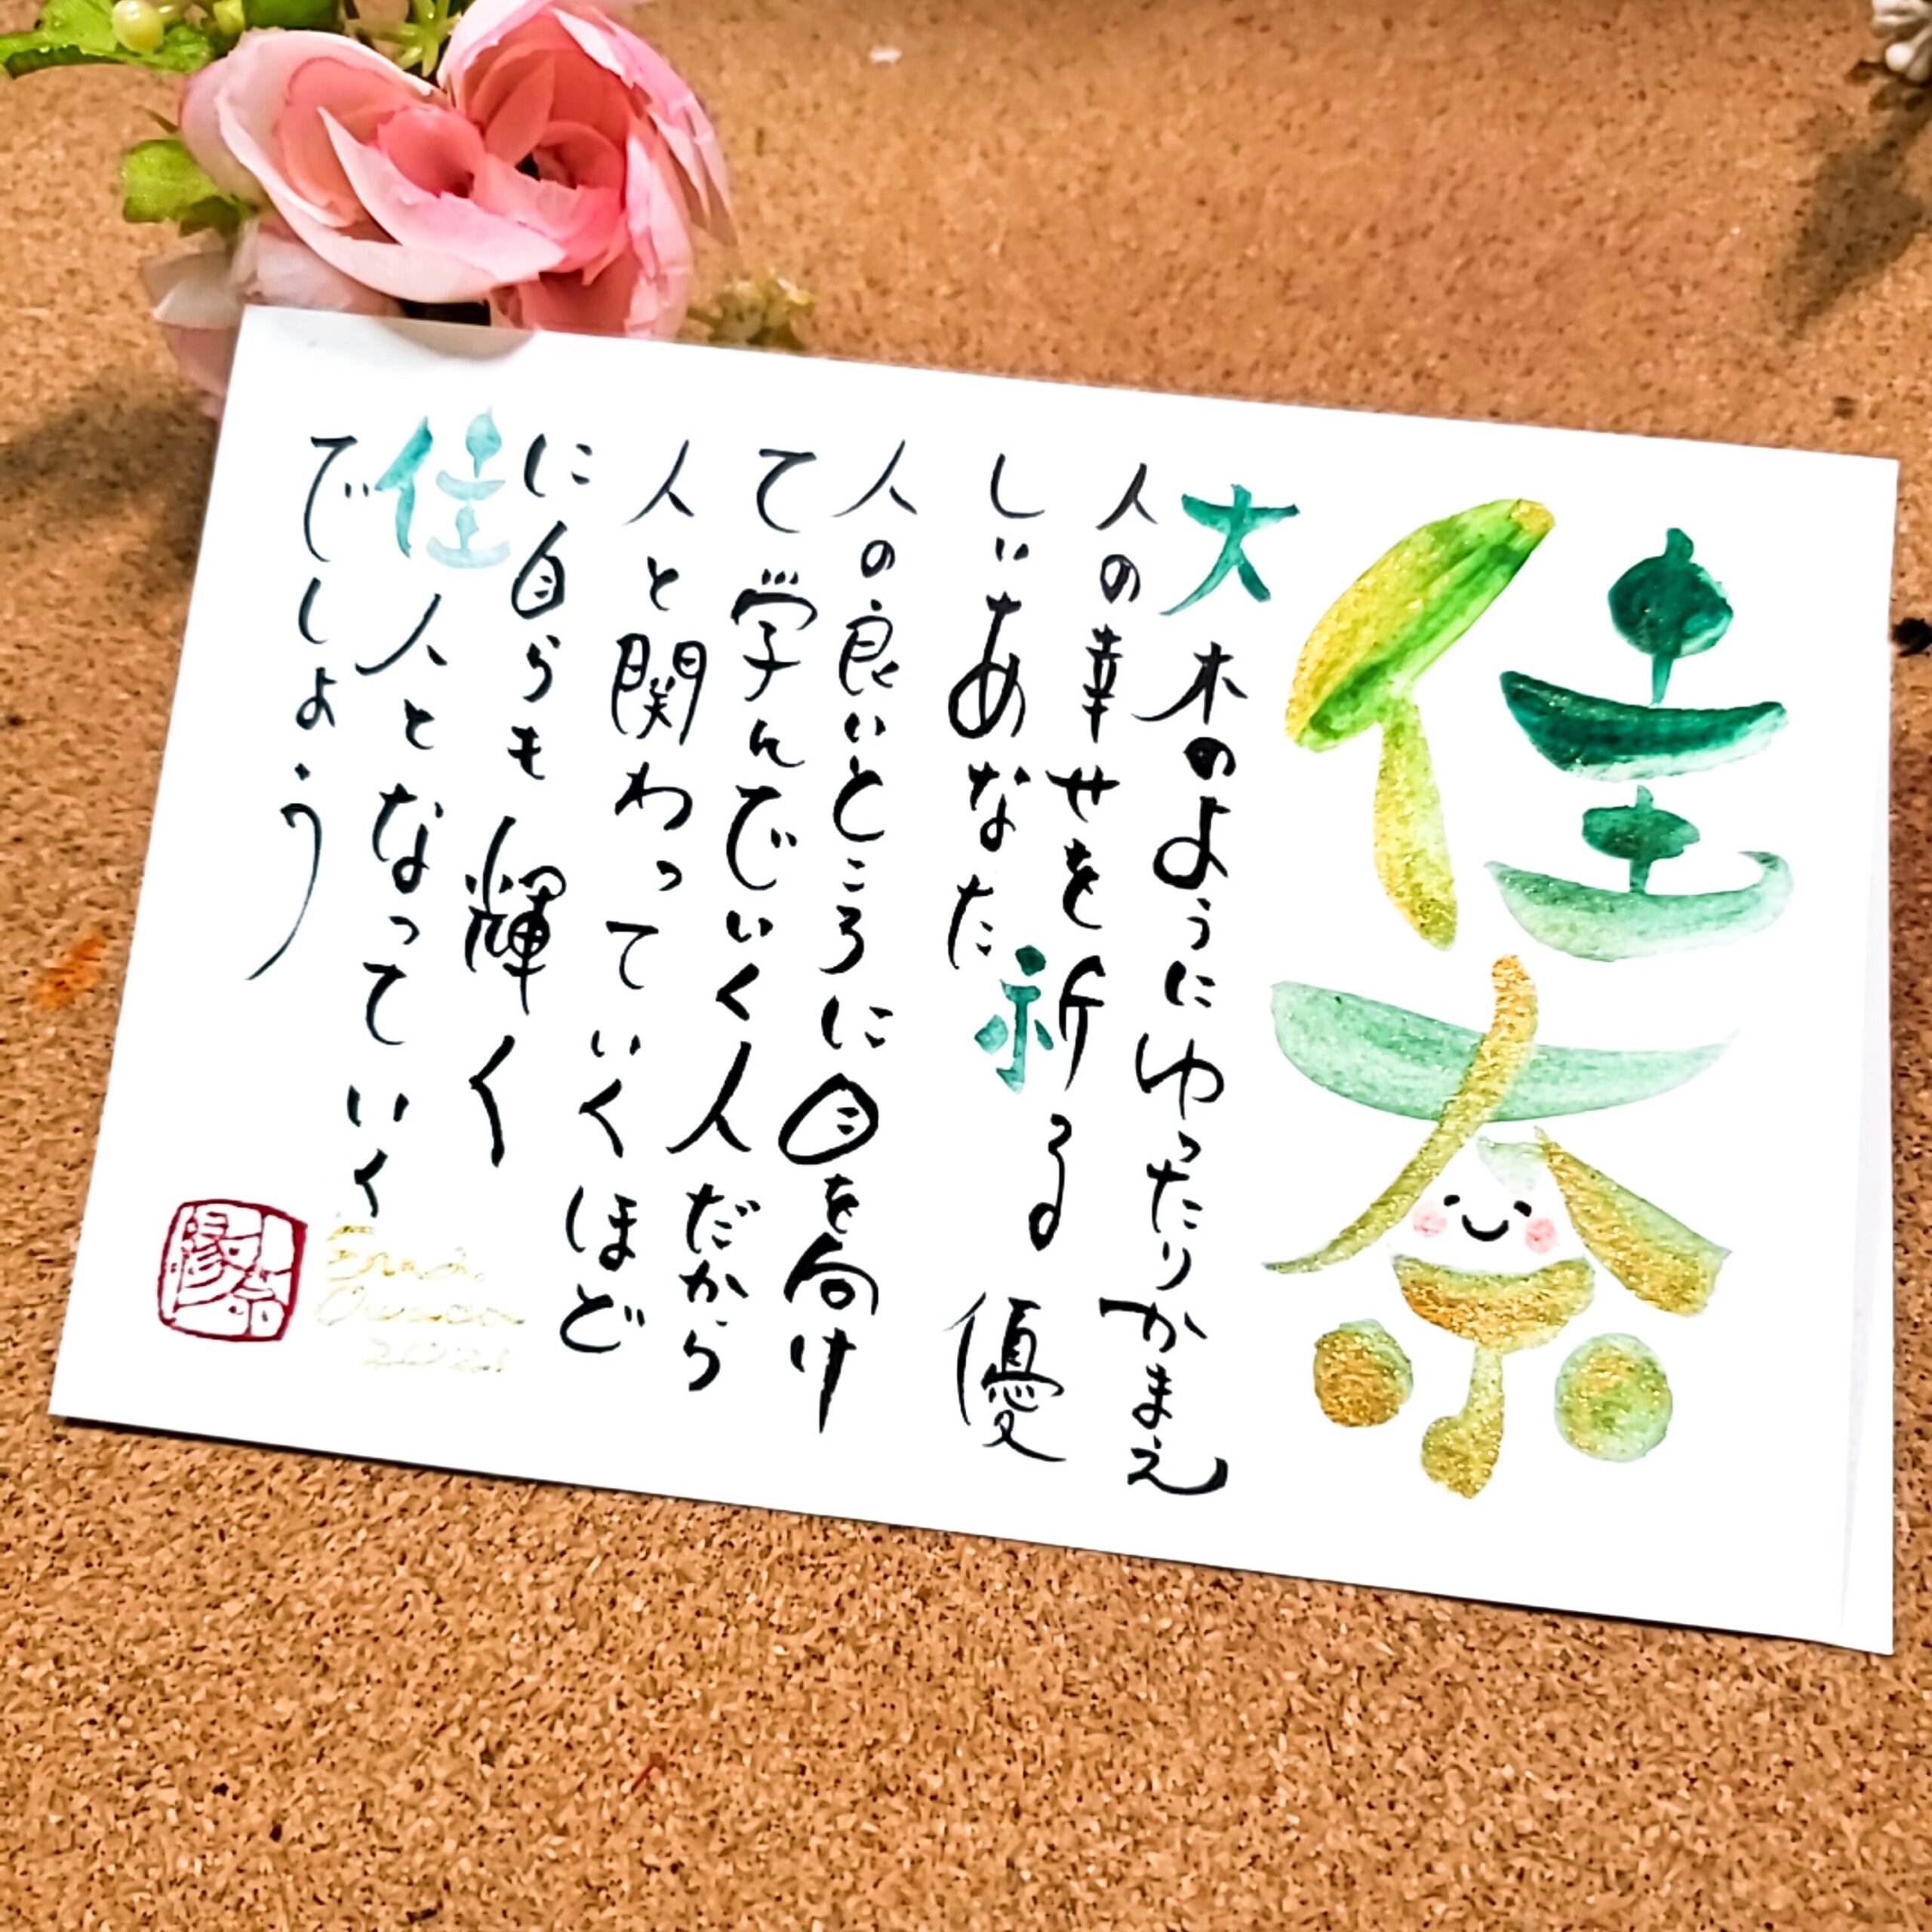 佳奈
大木のようにゆったりかまえ
人の幸せを祈る優
しいあなた
人の良いところに目を向け
て学んでいく人だから
人と関わっていくほど
に自らも輝く
佳人となっていく
でしょう
2021